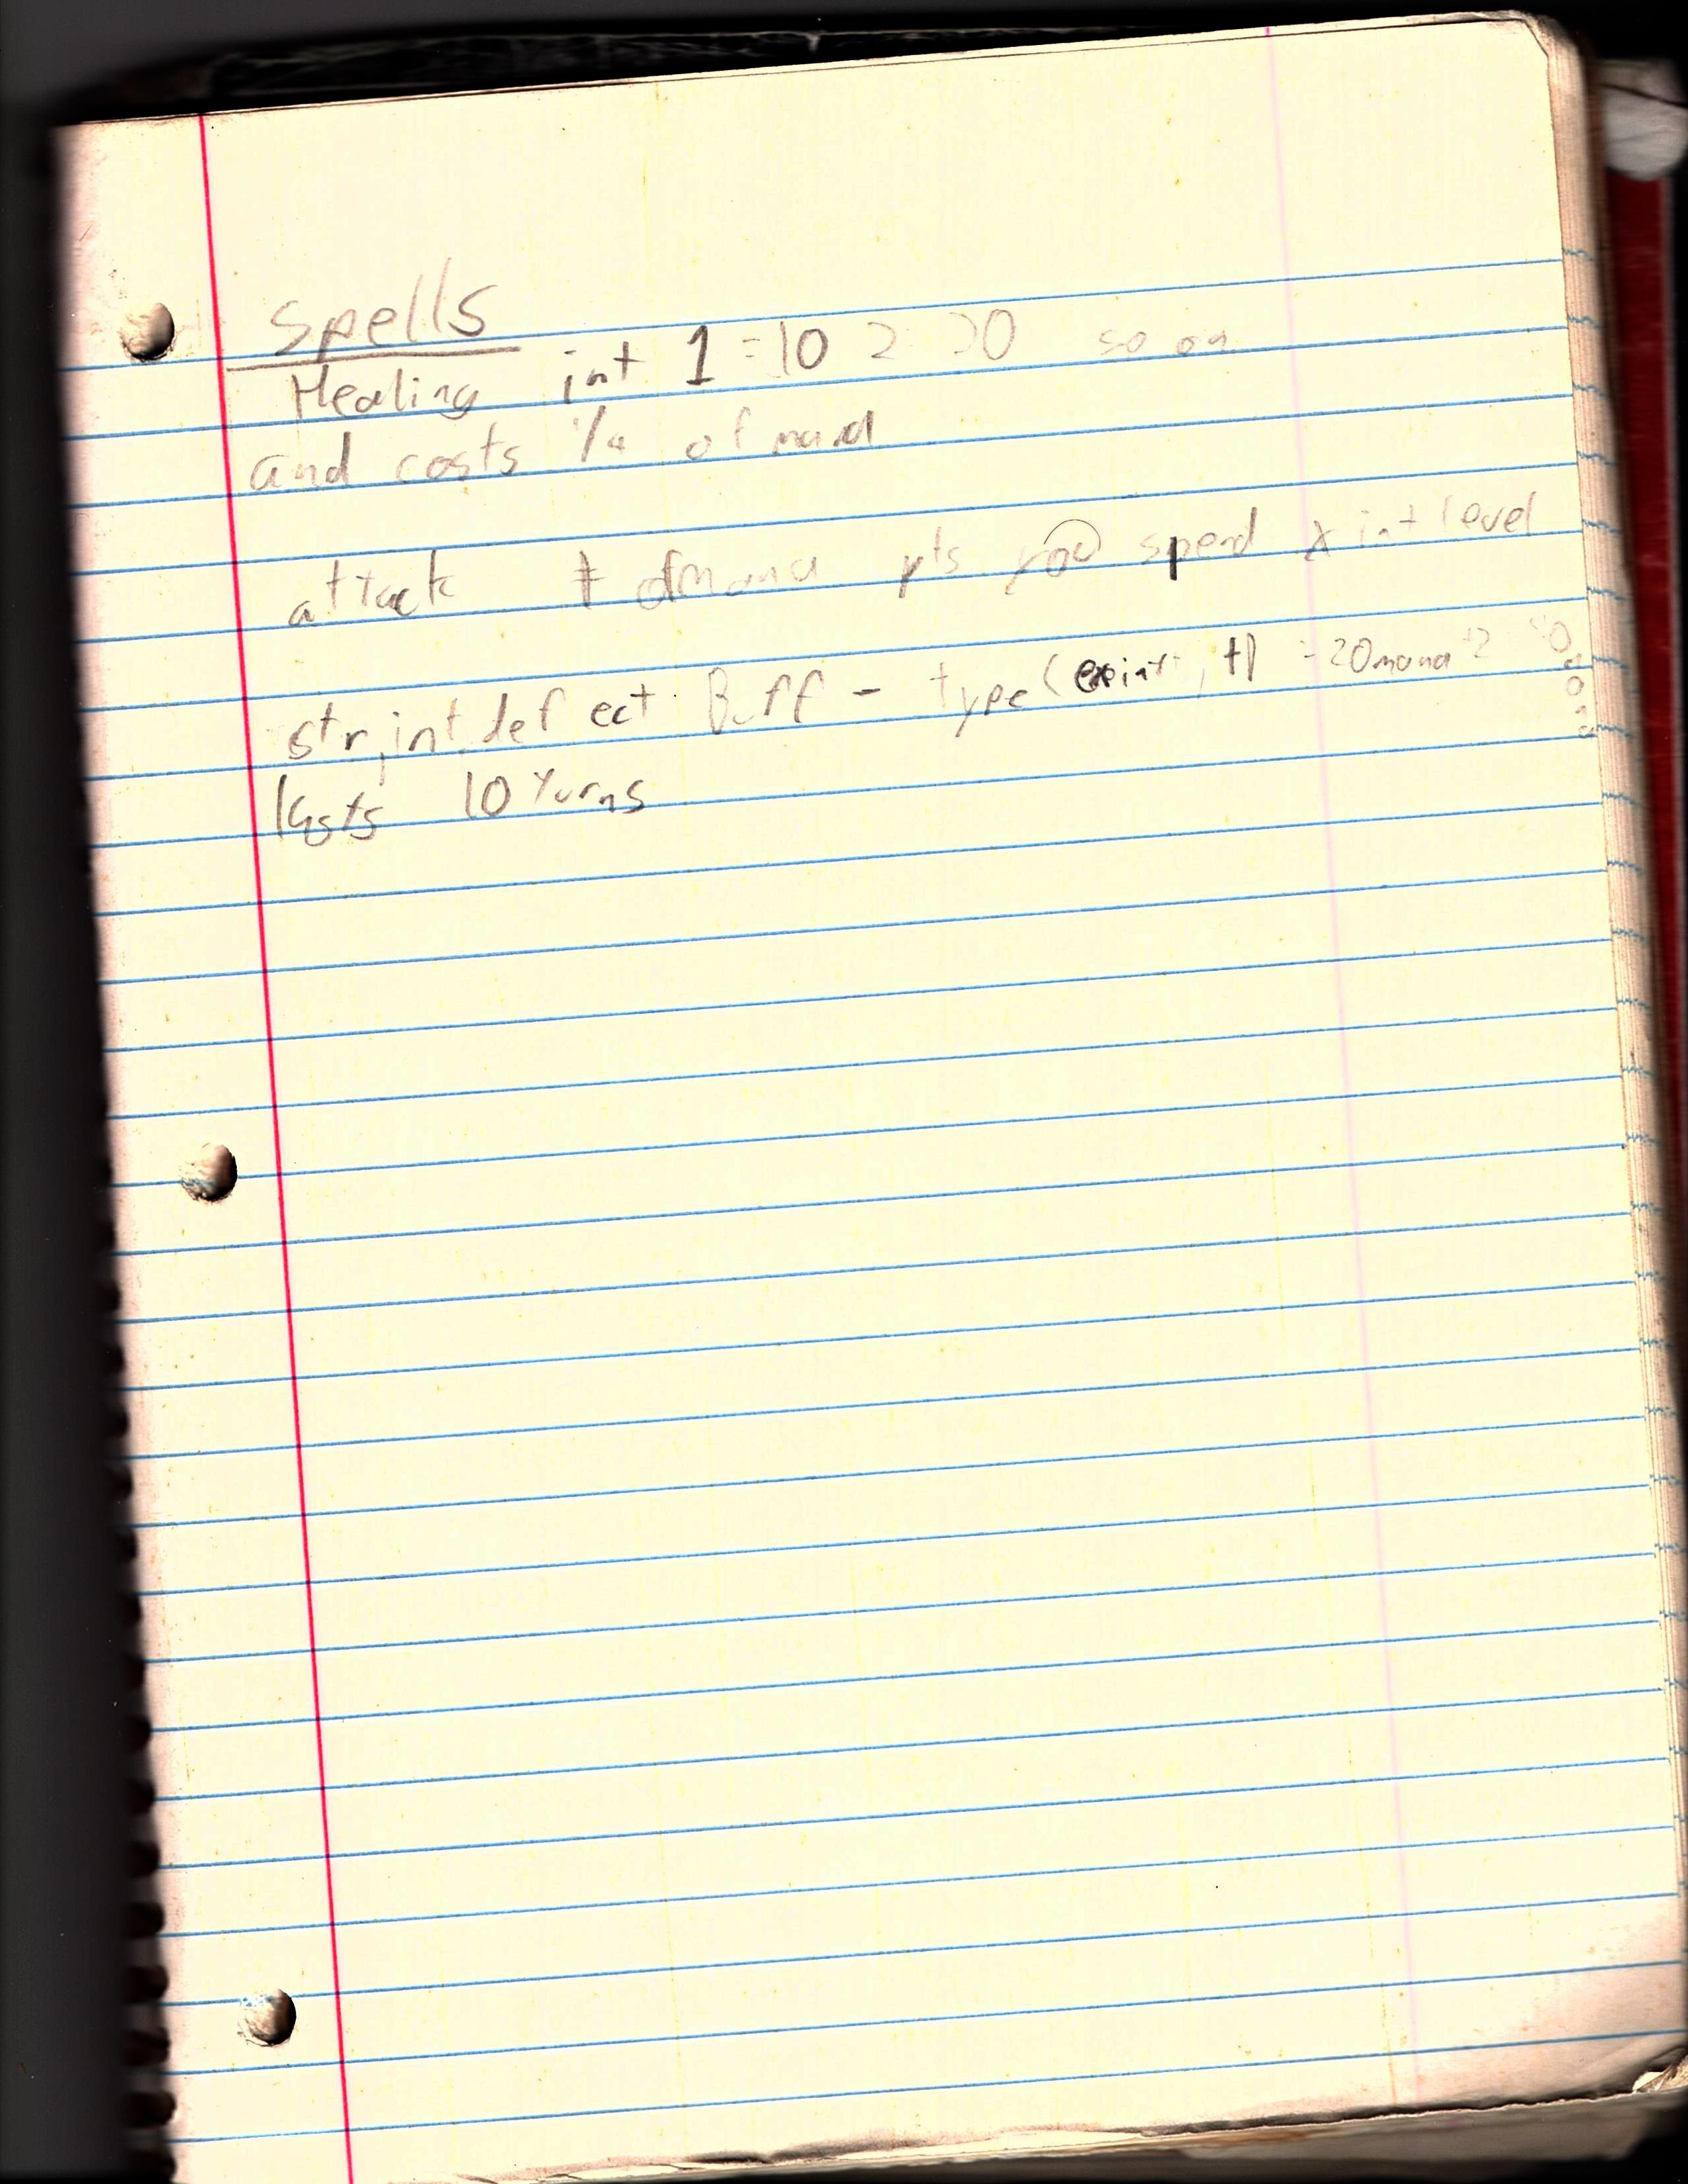 Spells
Healing int 1 = 10 2 20 so on
and costs 1/4 of mana
attack # of mana pts you spend x int level
str, int, def ect. Buff - type ( int, +1 = 20 mana +2 40
so on
lasts 10 turns